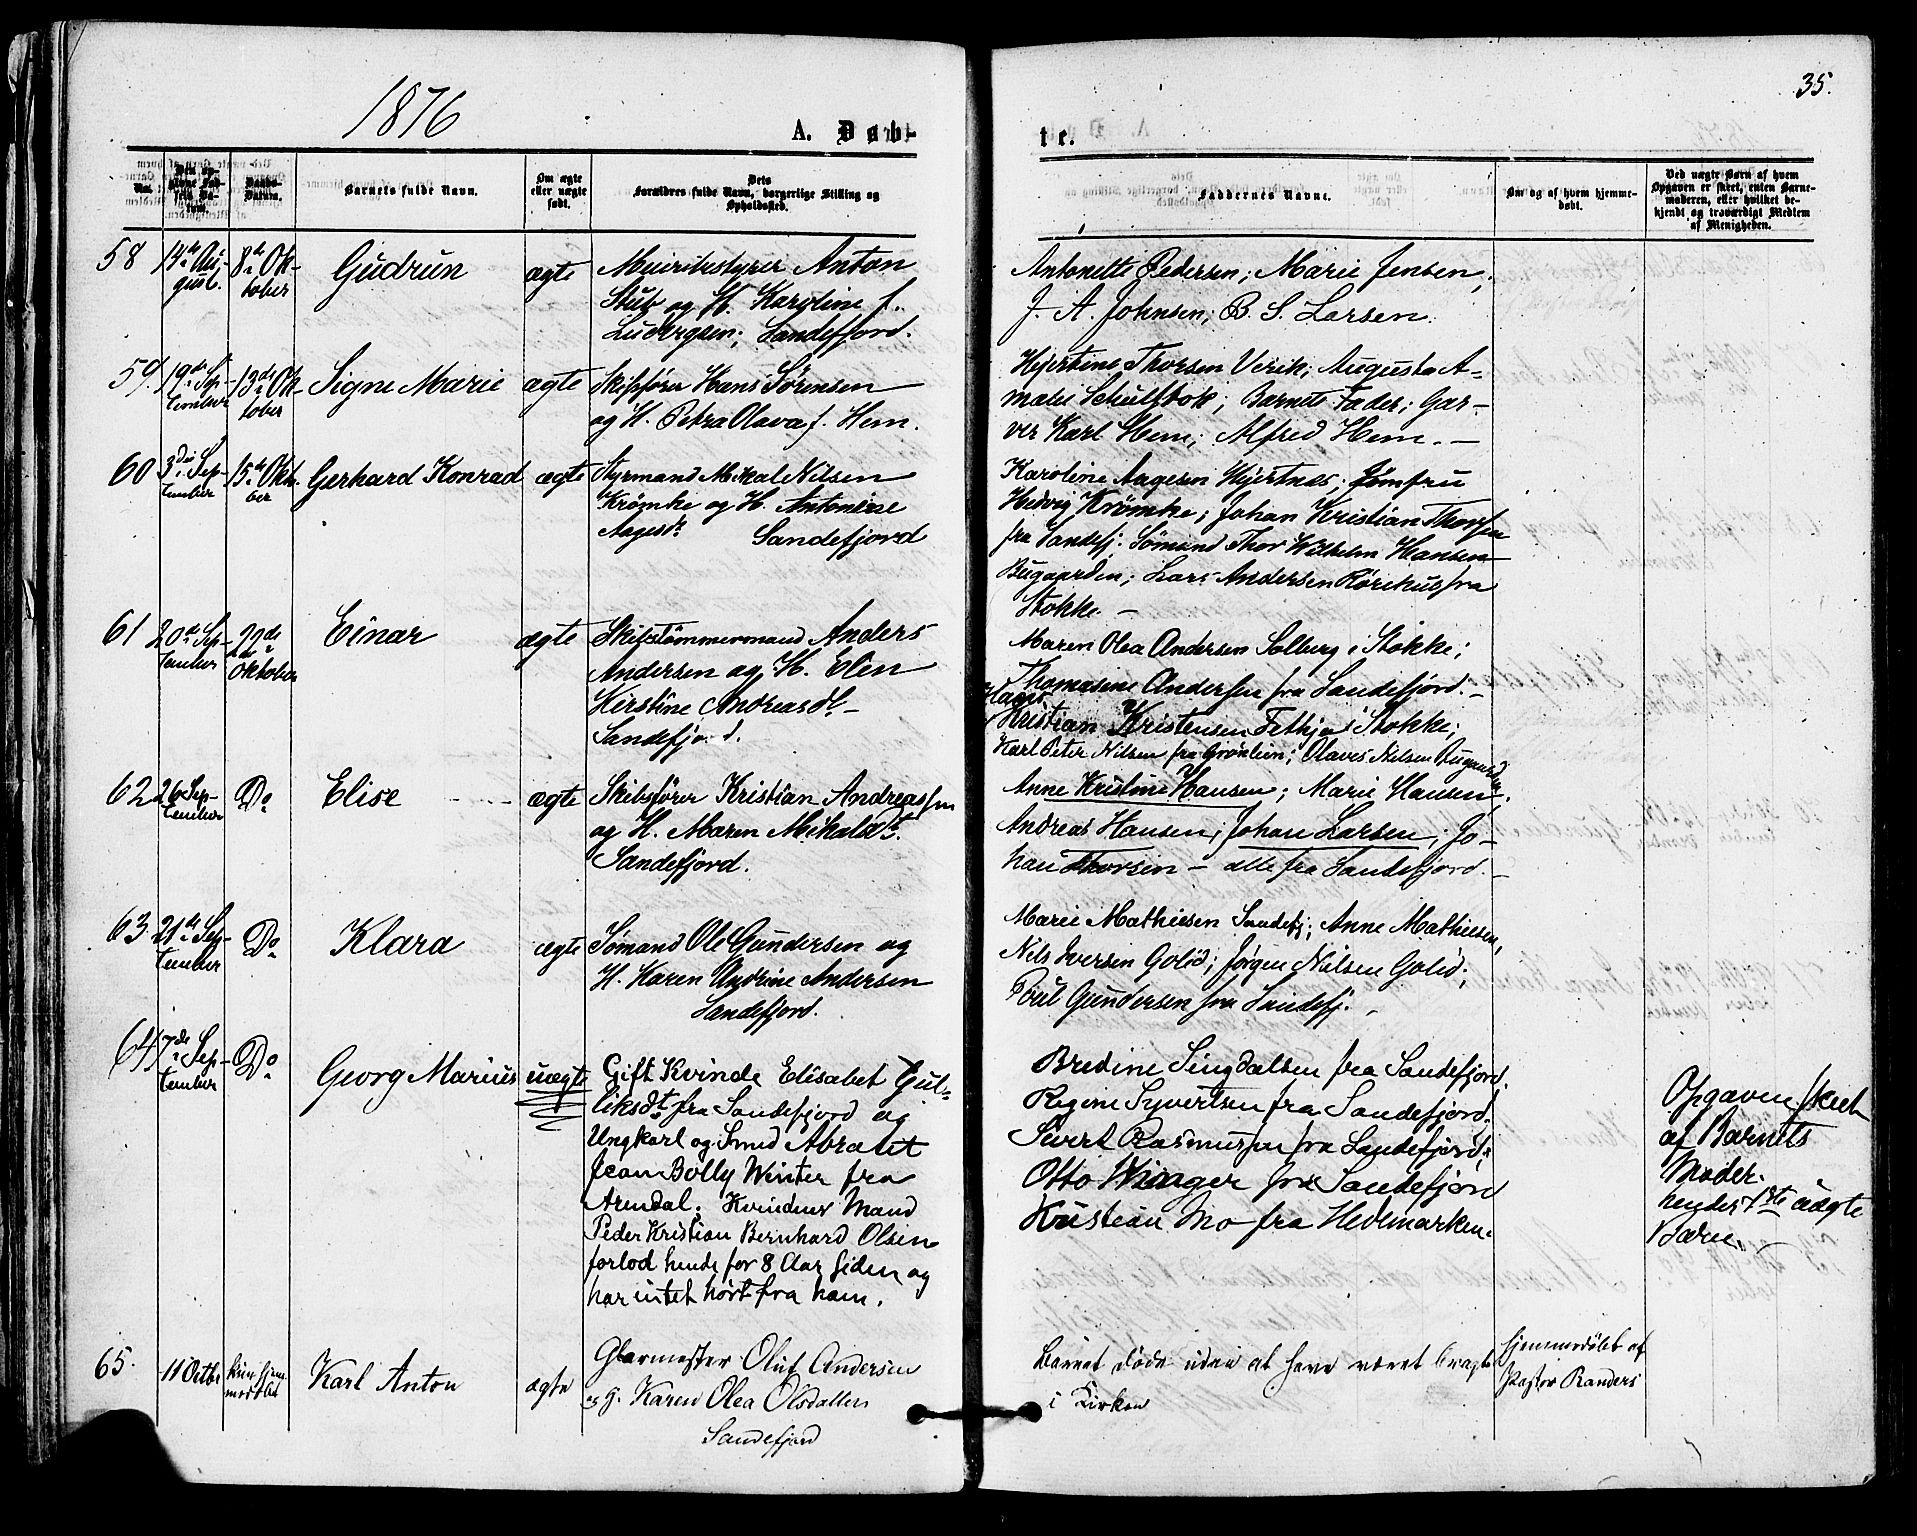 1876
A. Døb-
No.
Den opgivne Fødsels Datum.
Daabs-Datum.
Barnets fulde Navn.
Om ægte eller uægte født.
Dets Forældres fulde Navn, borgerlige Stilling og Opholdssted.
58 14de August. 8de Oktober Gudrun ægte
Meieribestyrer Anton
Stub og H. Karoline f.
Ludvigsen; Sandefjord.
59. 19de September 13de Oktober Signe Marie ægte
Skibsfører Hans Sørensen
og H. Petra Olava f. Hem.
60 3die September 15de Oktober Gerhard Konrad ægte
Styrmand Mikal Nilsen
Krömke og H. Antonine
Aagesdr.
Sandefjord
61 20de September 22de Oktober Einar ægte
Skibstömmermand Anders
Andersen og H. Elen
Kirstine Andreasdr. -
Sandefjord.
62 26 September Do Elise ægte
Skibsfører Kristian Andreassen
og H. Maren Mikalsdr.
Sandefjord.
63 21de September Do Klara ægte
Sömand Ole Gundersen og
H. Karen Andrine Andersen
Sandefjord.
64 7de September Do Georg Marius uægte
Gift Kvinde Elisabet Gul-
liksdr fra Sandefjord og
Ungkarl og Smed
Jean Bolly Winter fra
Arendal. Kvindens Mand
Peder Kristian Bernhard Olsen
forlod hende for 8 Aar siden og
har intet hørt fra ham.
65. 11 Octbr kun hjemmedöbt Karl Anton ægte
Glarmester Oluf Andersen
og H. Karen Olea Olsdatter
Sandefjord
35.
te.
Faddernes Navne.
Om og af hvem hjemme-
døbt.
Ved uægte Børn af hvem
Opgaven er skeet, enten Barne-
moderen, eller hvilket be-
kjendt og troværdigt Medlem
af Menigheden.
Antonette Pedersen; Marie Jensen;
J. A. Johnsen; B. S. Larsen.
Hjertine Thorsen Verik; Augusta A-
malie Schulstok; Barnets Fader; Gar-
ver Karl Hem; Alfred Hem. -
Karoline Aagesen Hjertnes; Jomfru
Hedvig Krömke; Johan Kristian Thorsen
fra Sandefj. Sömand Thor Wilhelm Hansen
Bugaarden; Lars Andersen Rørekus fra
Stokke. -
Maren Olea Andersen Solberg i Stokke;
Thomasine Andersen fra Sandefjord. -
Kristian Kristensen Fethja i Stokke;
Karl Peter Nilsen fra Grönlien; Olaves Nilsen Bugaarden.
Anne Kristine Hansen; Marie Hansen;
Andreas Hansen; Johan Larsen; Jo-
han Thorsen - alle fra Sandefjord. -
Marie Mathiesen Sandefj; Anne Mathiesen,
Nils Iversen Golid; Jörgen Nilsen Golid;
Poul Gundersen fra Sandefj.
Bredine Lingdalsen fra Sandefjord.
Regine Syvertsen fra Sandefjord.
Sivert Rasmussen fra Sandefjord;
Otto Winger fra Sandefjord
Kristian Mo fra Hedemarken.
Opgaven skeet
af Barnets
Moder.
hendes 1ste uægte
Barn.
Barnet döde uden at have været bragt
i Kirken
Hjemmedöbt af
Pastor Randers